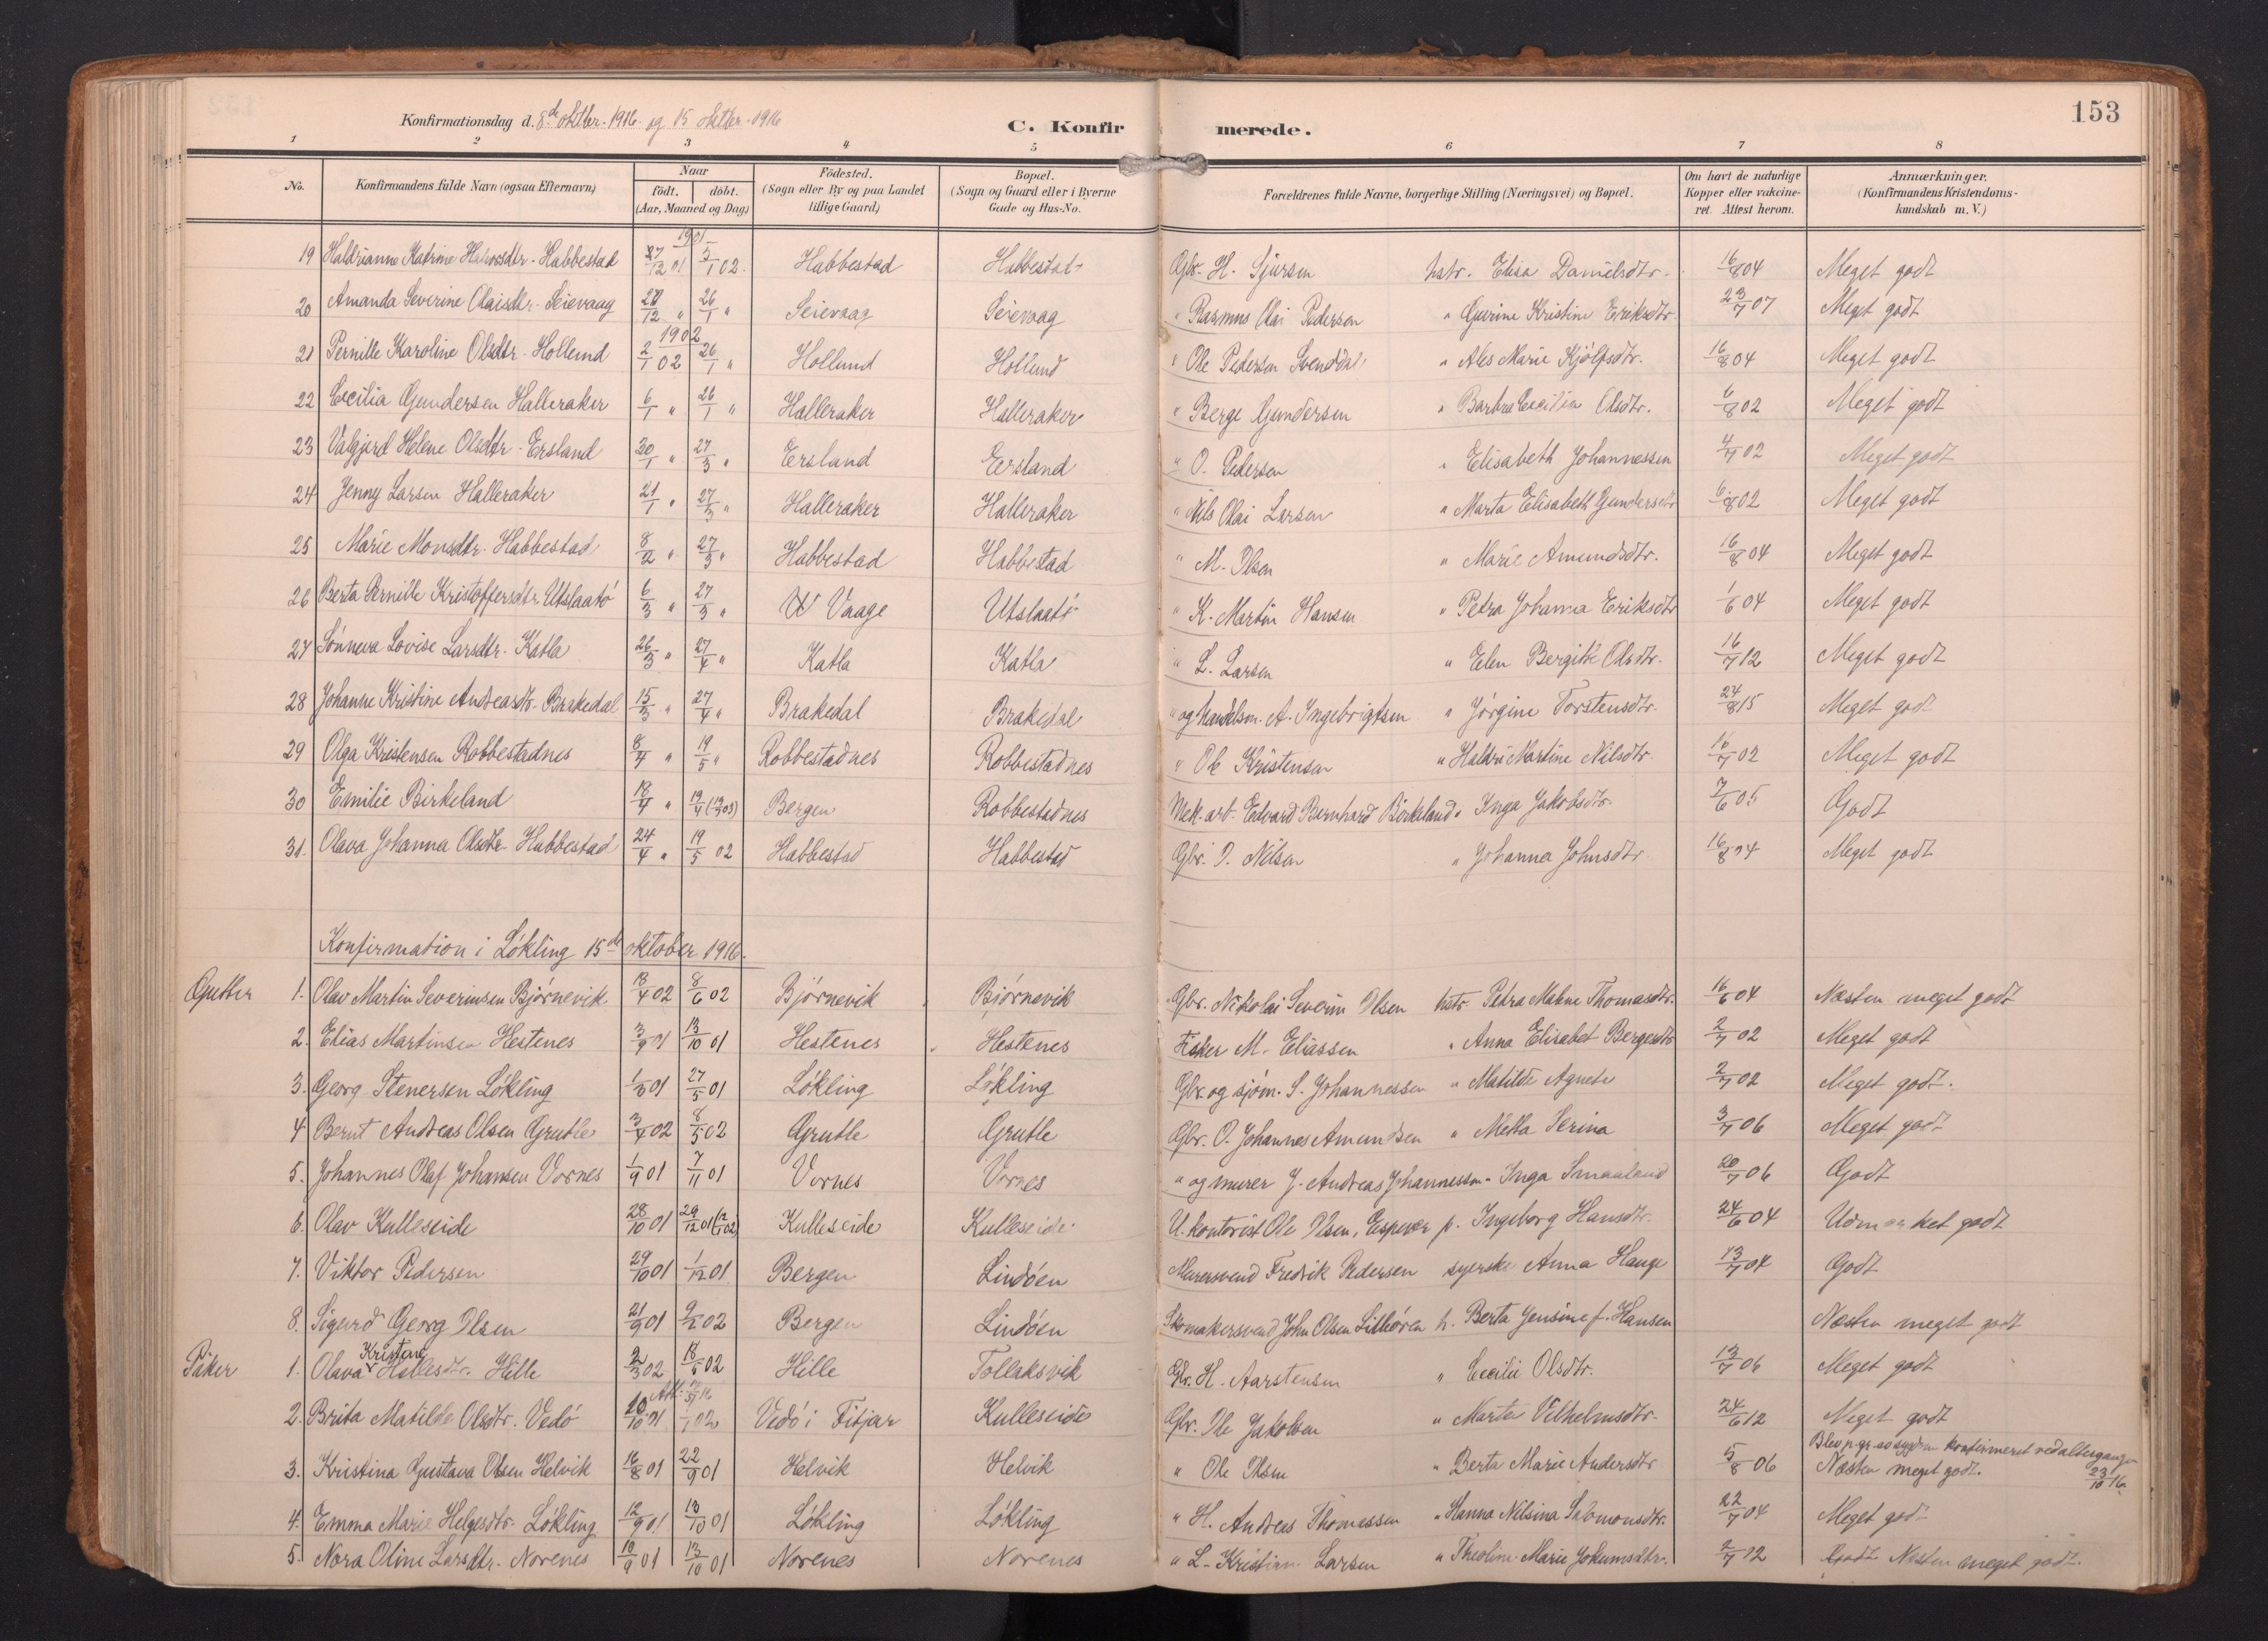 153
Konfirmationsdag d. 8de oktber. 1916 og 15 oktber. 1916
C. Konfirmerede.
1 2 3 4 5 6 7 8
No. Konfirmandens fulde Navn (ogsaa Efternavn) Naar födt. döbt. (Aar, Maaned og Dag) Födested. (Sogn eller By og paa Landet tillige Gaard) Bopæl. (Sogn og Gaard eller i Byerne Gade og Hus-No. Forældrenes fulde Navne, borgerlige Stilling (Næringsvei) og Bopæl. Om havt de naturlige Kopper eller vakcineret. Attest herom. Anmærkninger. (Konfirmandens Kristendomskundskab m. V.)
1901
19 Haldrianne Katrine Halvorsdtr. Habbestad 27/12 01 5/1 02. Habbestad Habbestad Gbr. H. Sjursen hstr. Elisa Danielsdtr. 16/8 04 Meget godt
20 Amanda Severine Olaisdtr. Seievaag 27/12 " 26/1 " Seievaag Seievaag " Rasmus Olai Pedersen " Gurine Kristine Eriksdtr 23/7 07 Meget godt
1902
21 Pernille Karoline Olsdtr. Hollund 2/1 02 26/1 " Hollund Hollund " Ole Pedersen Svenddal " Ales Marie Kjölfsdtr. 16/8 04 Meget godt
22 Cecilia Gundersen Halleraker 6/1 " 26/1 " Halleraker Halleraker " Berge Gundersen " Barbra Cecilia Olsdtr. 6/8 02 Meget godt
23 Valgjerd Helene Olsdtr. Ersland 30/1 " 27/3 " Eersland Eersland " O. Pedersen " Elisabeth Johannessen 4/7 02 Meget godt
24 Jenny Larsen Halleraker 21/1 " 27/3 " Halleraker Halleraker " Nils Olai Larsen " Marta Elisabeth Gundersdtr 6/8 02 Meget godt
25 Marie Monsdtr. Habbestad 8/2 " 27/3 " Habbestad Habbestad " M. Olsen " Marie Amundsdtr. 16/8 04 Meget godt
26 Berta Pernille Kristoffersdtr. Utslaatö 6/3 " 27/3 " Vaage Utslaatö " K. Martin Hansen " Petra Johanna Eriksdtr 1/6 04 Meget godt
27 Sönneva Lovise Larsdtr. Katla 26/3 " 27/4 " Katla Katla " L. Larsen " Elen Bergitte Olsdtr. 16/7 12 Meget godt
28 Johanne Kristine Andreasdtr. Brakedal 15/3 " 27/4 " Brakedal Brakedal " og Handelsm. A. Ingebrigtsen " Jörgine Torstensdtr. 24/8 15 Meget godt
29 Olga Kristensen Robbestadnes 8/4 " 19/5 " Robbestadnes Robbestadnes " Ole Kristensen " Haldri Martine Nilsdtr. 16/7 02 Meget godt
30 Emilie Birkeland 18/4 " Bergen Robbestadnes Mek. arb. Edvard Bernhard Birkeland " Inga Jakobsdtr. 7/6 05 Godt
31. Olava Johanna Olsdtr Habbestad 24/4 " 19/5 02 Habbestad Habbestad Gbr. O. Nilsen " Johanna Johnsdtr. 16/8 04 Meget godt
Konfirmation i Lökling 15de oktober 1916.
Gutter 1. Olav Martin Severinsen Björnevik 18/4 02 8/6 02 Björnevik Björnevik Gbr. Nikolai Severin Olsen hstr. Petra Malene Thomasdtr. 16/6 04 Næsten meget godt
2. Elias Martinsen Hestenes 3/9 01 13/10 01 Hestenes Hestenes Fisker M. Eliassen " Anna Elisabet Bergesdtr 2/7 02 Meget godt
3. Georg Stenersen Lökling 1/5 01 27/5 01 Lökling Lökling Gbr. og sjöm. S. Johannessen " Matilde Agnete 2/7 02 Meget godt.
4 Bernt Andreas Olsen Grutle 3/4 02 8/5 02 Grutle Grutle Gbr. O. Johannes Amundsen " Metta Serina 3/7 06 Meget godt
5. Johannes Olaf Johansen Vornes 1/9 01 7/11 01 Vornes Vornes " og murer J. Andreas Johannessen " Inga Smaaland 20/7 06 Godt
6. Olav Kulleseide 28/10 01 29/12 01 Kulleseide Kulleseide U. kontorist Ole Olsen, Espevær p. Ingeborg Hansdtr. 24/6 04 Udmærket godt
7. Viktor Pedersen 29/10 01 1/12 01 Bergen Lindöen Murersvend Fredrik Pedersen syerske Anna Hauge 13/7 04 Godt
8. Sigurd Georg Olsen 21/9 01 9/2 02 Bergen Lindöen Skomakersvend John Olsen Lillören h. Berta Jensine f. Hansen Næsten meget godt
Kristene
Piker 1. Olava Hallesdtr. Hille 2/3 02 18/5 02 Hille Tollaksvik Gbr. H. Aarstensen " Cecilie Olsdtr. 13/7 06 Meget godt
2. Brita Matilde Olsdtr. Vedö 10/10 01 1/1 02 Vedö i Fitjar Kulleseide Gbr. Ole Jakobsen " Marta Vilhelmsdtr. 24/6 12 Meget godt
Blev p. gr. av sygdom konfirmeret ved altergangen 23/10 16.
3. Kristina Gustava Olsen Helvik 16/8 01 22/9 01 Helvik Helvik " Ole Olsen " Berta Marie Andersdtr 5/8 06 Næsten meget godt.
4. Emma Marie Helgesdtr. Lökling 12/9 01 13/10 01 Lökling Lökling " H. Andreas Thomassen " Hanna Nilsina Salomonsdtr. 22/7 04 Meget godt
5. Nora Oline Larsdtr. Norenes 10/9 01 13/10 01 Norenes Norenes " L. Kristian Larsen " Theoline Marie Jokumsdtr. 2/7 12 Godt Næsten meget godt.